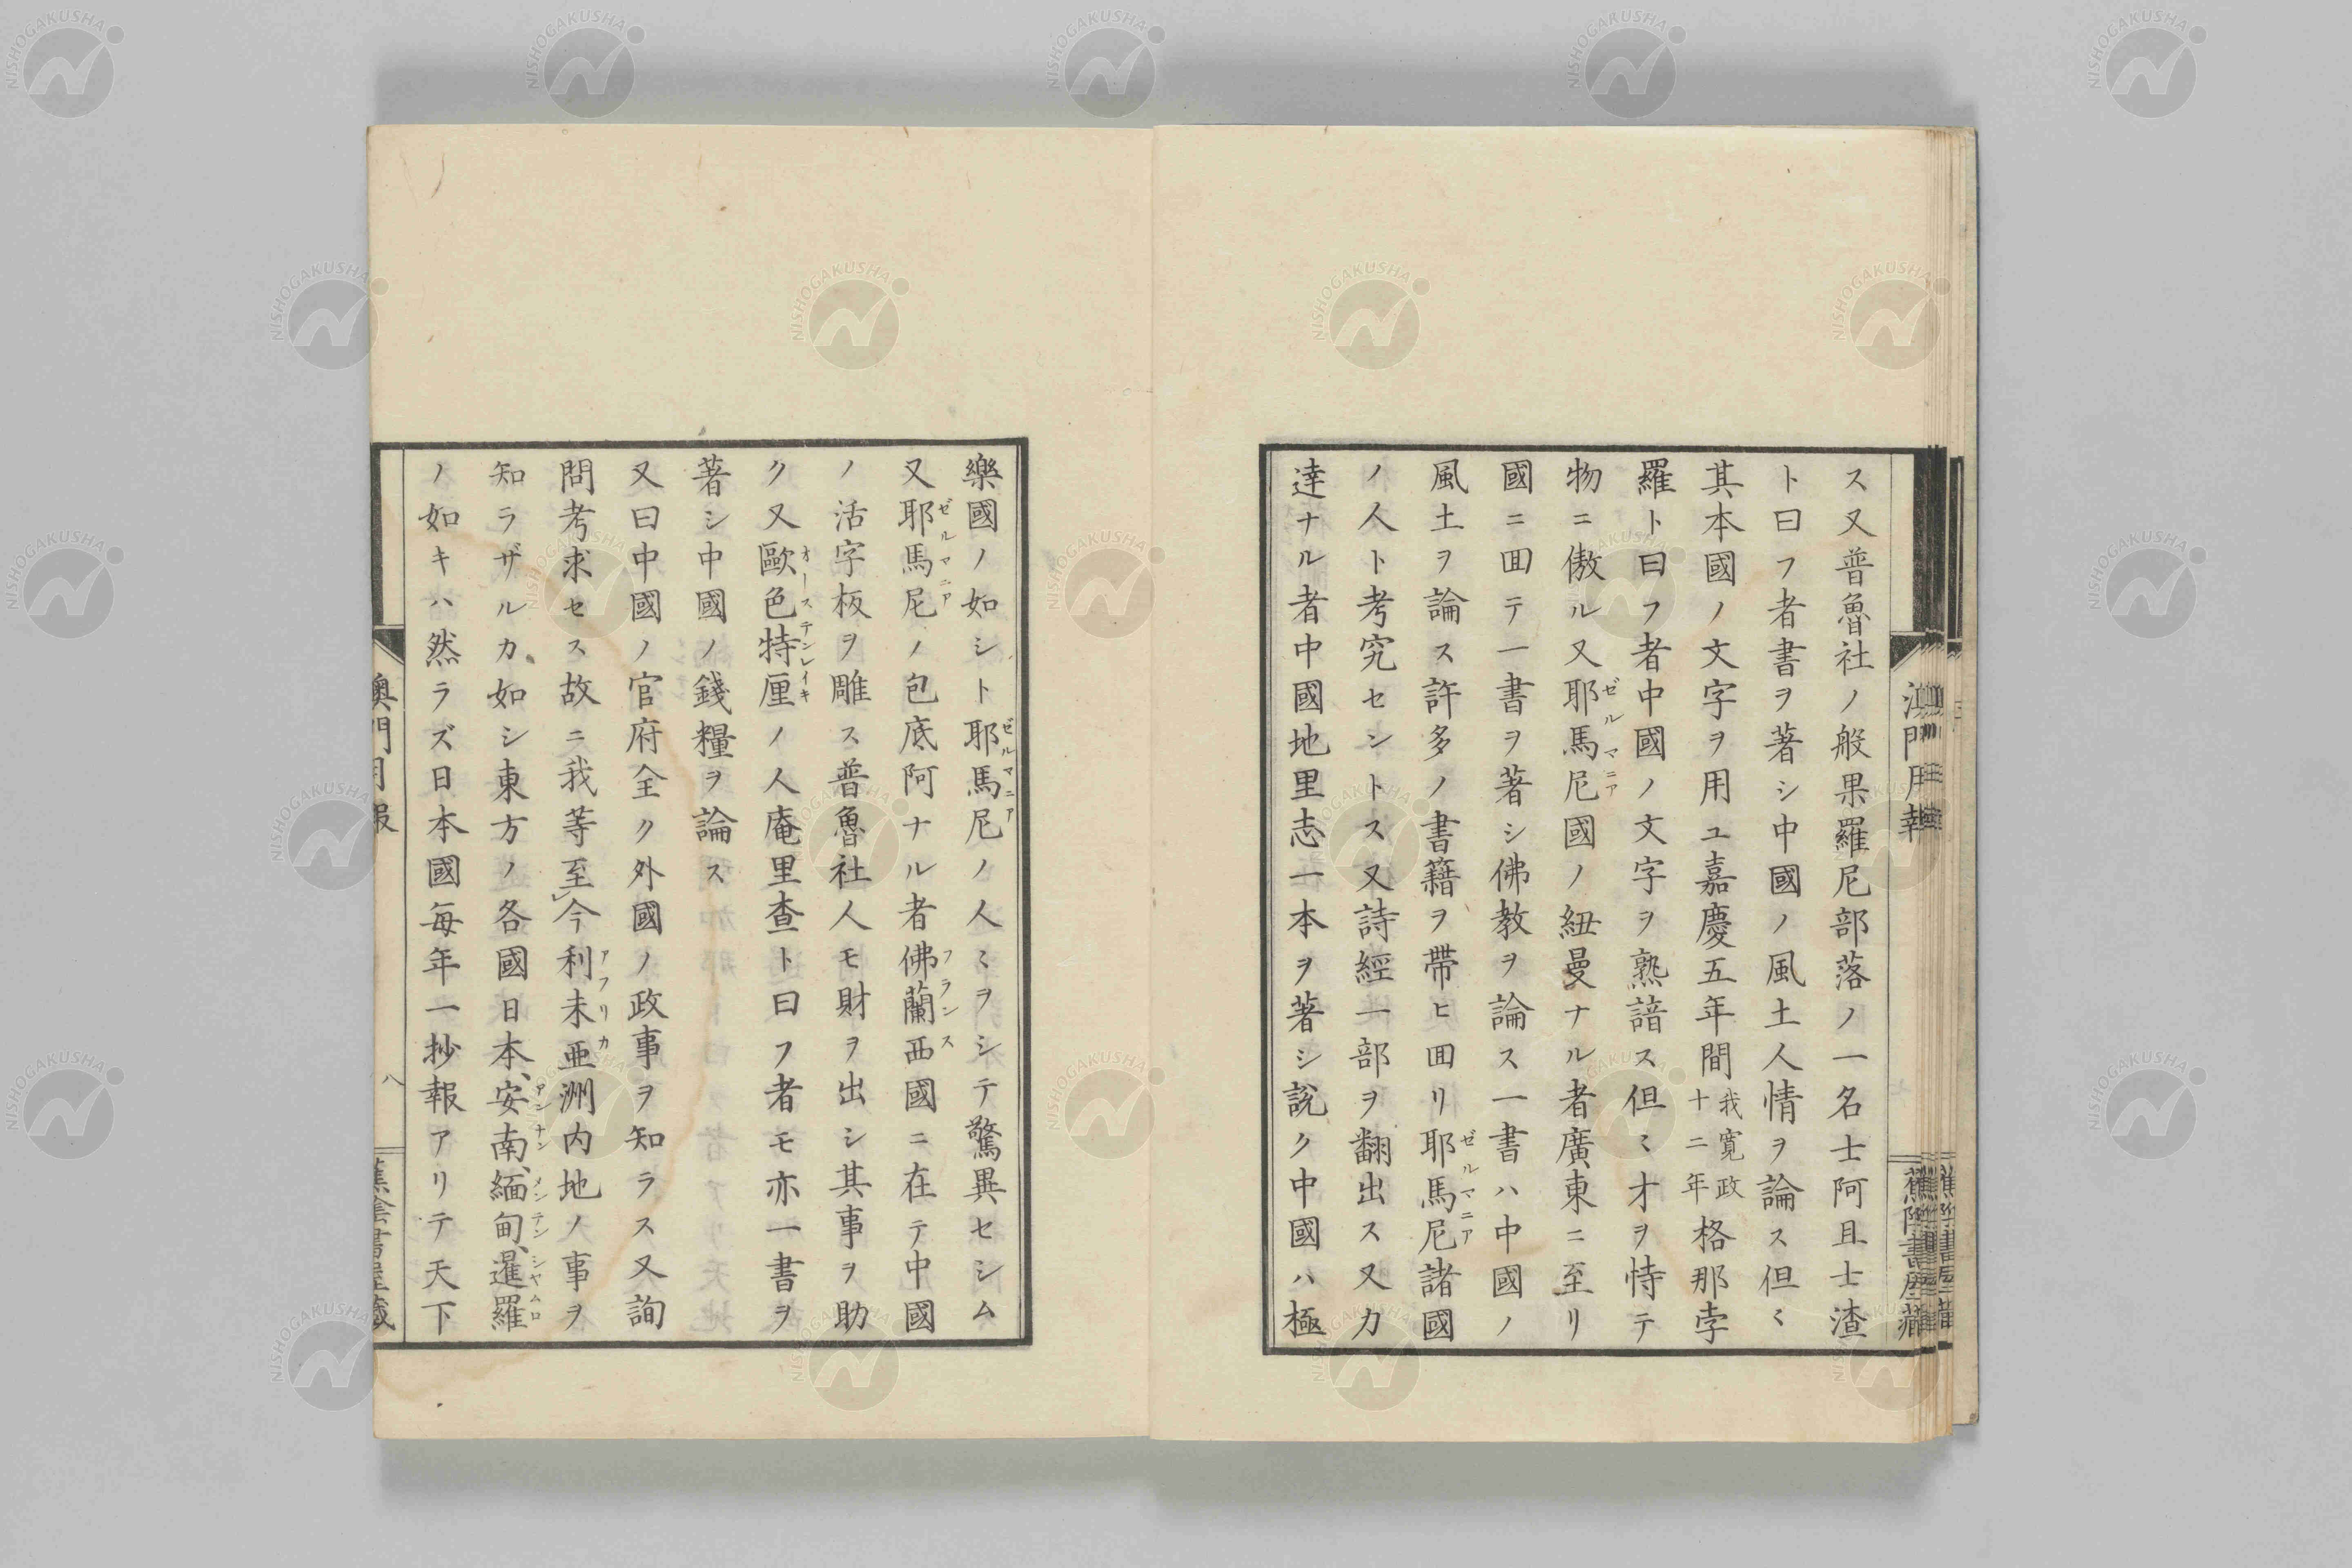 ス又普魯社ノ般果羅尼部落ノ一名士阿且士渣
ト曰フ者書ヲ著シ中國ノ風土人情ヲ論ス但ミ
其本國ノ文字ヲ用ユ嘉慶五年間我寛政十二年格那孛
羅ト曰フ者中國ノ文字ヲ熟諳ス但ミ才ヲ恃テ
物ニ傲ル又耶馬尼國ノ紐曼ナル者廣東ニ至リ
ゼルマニア
國ニ囬テ一書ヲ著シ佛教ヲ論ス一書ハ中國ノ
風土ヲ論ス許多ノ書籍ヲ帶ヒ囬リ耶馬尼諸國
ゼルマニア
ノ人ト考究セントス又詩經一部ヲ翻出ス又カ
達ナル者中國地里志一本ヲ著シ説ク中國ハ極
樂國ノ如シト耶馬尼ノ人ミヲシテ驚異セシム
ゼルマニア
又耶馬尼ノ包底阿ナル者佛蘭西國ニ在テ中國
ゼルマニア フランス
ノ活字板ヲ雕ス普魯社人モ財ヲ出シ其事ヲ助
ク又歐色特厘ノ人庵里查ト曰フ者モ亦一書ヲ
オーステンレイキ
著シ中國ノ錢糧ヲ論ス
又曰中國ノ官府全ク外國ノ政事ヲ知ラス又詢
問考求セス故ニ我等至今利未亜洲内地ノ事ヲ
アフリカ
知ラザルカ如シ東方ノ各國日本、安南、緬甸、暹羅
アンナン メンテン シヤムロ
ノ如キハ然ラズ日本國毎年一抄報アリテ天下
澳門月報
八
蕉陰書屋藏
NISHOGAKUSHA